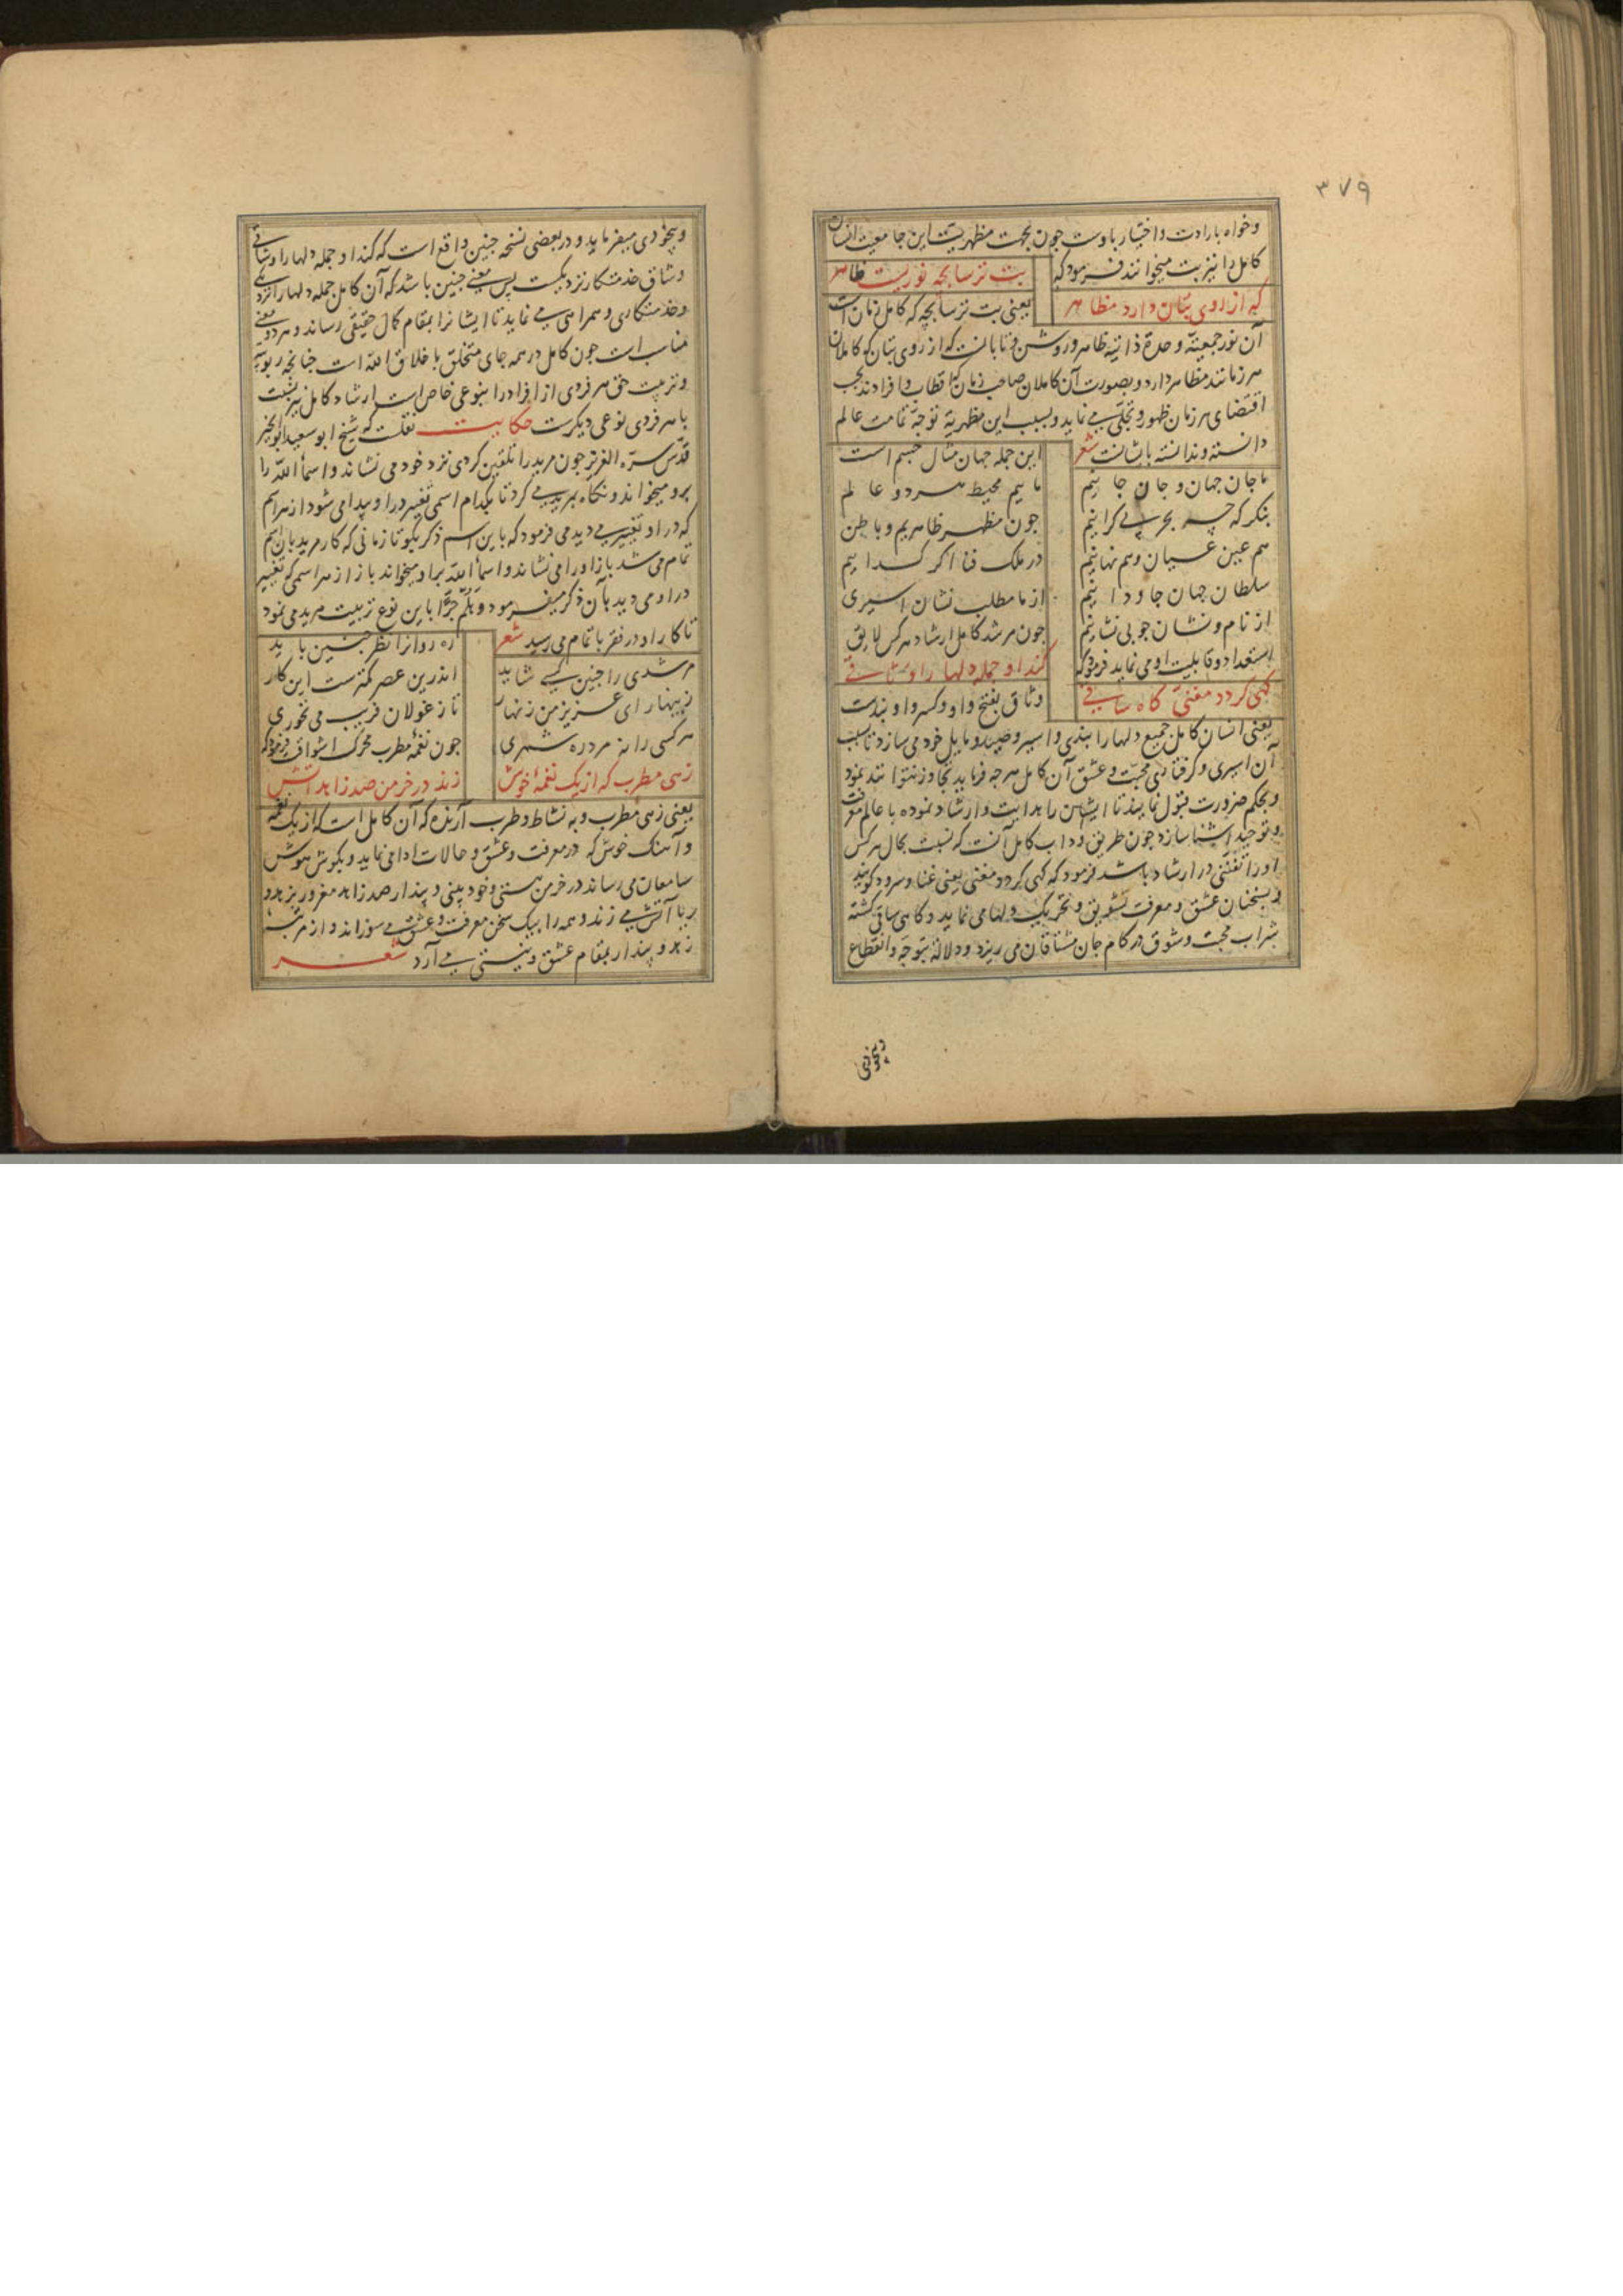 ۳۷۹
وخواه بارادت واختیار باوست جون بجهت مظهریت این جامعیت انسان
کامل را نیز بت میخوانند فرمود که
بت ترسابچه نوریست ظاهر
که از روی بتان دارد مظاهر
یعنی بت ترسابچه که کامل زمان است
آن نور جمعیته وحدة ذاتیه ظاهر وروشن وتابانست که از روی بتان که کاملان
هر زمانند مظاهر دارد وبصورت آن کاملان صاحب زمان که اقطاب وافرادند بحسب
اقتضای هر زمان ظهور وتجلی می نماید وبسبب این مظهریة توجه تمامت عالم
دانسته وندانسته باشانست شعر
این جمله جهان مثال جسم است
ما جان جهان وجان جانیم
ماییم محیط هر دو عالم
بنکر که چه بحر بی کرانیم
جون مظهر ظاهریم وباطن
هم عین عیان وهم نهانیم
در ملک فنا اکر کداییم
سلطان جهان جاودانیم
از ما مطلب نشان اسیری
از نام ونشان جو بی نشانیم
جون مرشد کامل ارشاد هرکس لایق
استعداد وقابلیت او می نماید فرمود که
کند او جمله دلها را وثاقی
کهی کردد مغنی کاه ساقی
وثاق بفتح واو وکسر واو بندست
یعنی انسان کامل جمیع دلها را بندی واسیر وصید ومایل خود می سازد تا بسبب
آن اسیری وکرفتاری محبت وعشق آن کامل هرچه فرماید تجاوز نتوانند نمود
وبحکم ضرورت قبول نمایند تا ایشان را هدایت وارشاد نموده با عالم معرفت
وتوحید آشنا سازد جون طریق وداب کامل آنست که نسبت بحال هرکس
اورا تفننی در ارشاد باشد فرمود که کهی کردد مغنی یعنی غنا وسرود کوینده
وبسخنان عشق ومعرفت تشویق وتحریک دلها می نماید وکاهی ساقی کشته
شراب محبت وشوق در کام جان مشتاقان می ریزد ودلالة بتوجه وانقطاع
وبیخودی
وبیخودی میفرماید ودر بعضی نسخه جنین واقع است که کند او جمله دلها را وشاقی
وشاق خدمتکار نزدیکست پس معنی جنین باشد که آن کامل جمله دلها را نزد
وخدمتکاری وهمراهی می نماید تا ایشانرا بمقام کمال حقیقی رساند وهر دو معنی
مناسب است جون کامل در همه جای متخلق باخلاق الله است جنانچه ربوبیة
وتربیت حق هر فردی از افراد را بنوعی خاص است ارشاد کامل نیز نسبت
با هر فردی نوعی دیکرست حکایت نقلست که شیخ ابو سعید ابو الخیر
قدس سره العزیز جون مرید را تلقین کردی نزد خود می نشاند واسماء الله را
برو میخواند ونکاه بمرید می کرد تا بکدام اسمی تغییر در او پیدا می شود از هر اسم
که در او تغییر می دید می فرمود که باین اسم ذکر بکو تا زمانی که کار مرید بان اسم
تمام می شد باز اورا می نشاند واسماء الله براو میخواند باز از هر اسمی که تغییر
در او می دید بآن ذکر میفرمود وهلم جرا باین نوع تربیت مرید می نمود
تا کار او در فقر باتمام می رسید شعر
ره روانرا نظر جنین باید
مرشدی را جنین کسی شاید
اندرین عصر کمترست این کار
زینهار ای عزیز من زنهار
تا ز غولان فریب می نخوری
هر کسی را نه مرد ره شمری
جون نغمه مطرب محرک اشواق فرمود که
زهی مطرب که از یک نغمه خوش
زند در خرمن صد زاهد آتش
یعنی زهی مطرب وبه نشاط وطرب آرنده که آن کامل است که از یک نغمه
وآهنک خوش که در معرفت وعشق وحالات ادا می نماید وبکوش هوش
سامعان می رساند در خرمن هستی وخود بینی وپندار صد زاهد مغرور بزهد و
ریا آتش می زند وهمه را بیک سخن معرفت وعشق می سوزاند واز مرتبه
زهد وپندار بمقام عشق ونیستی می آرد شعر